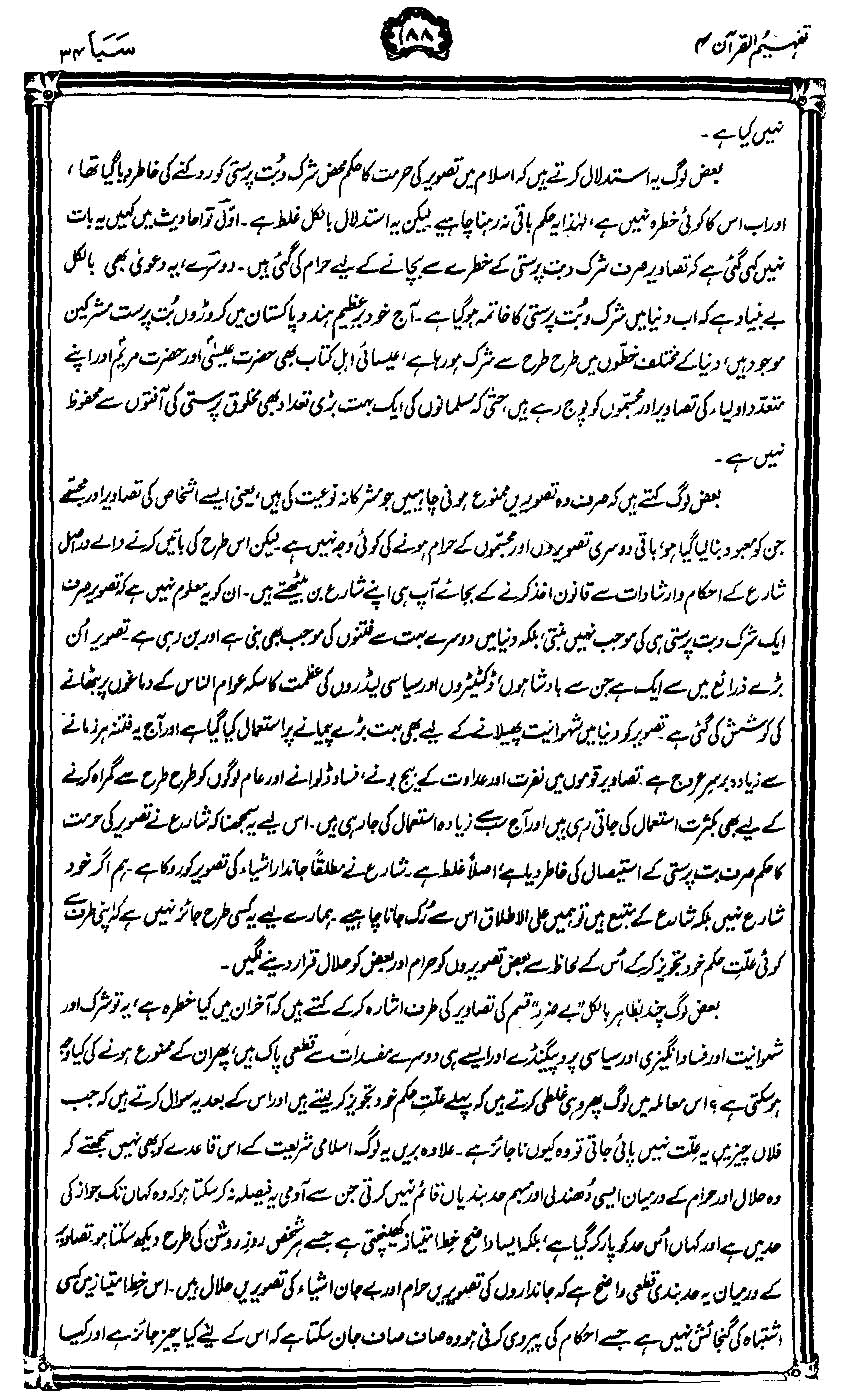 تفہیم القرآن ۴
۱۸۸
سَبَا ۳۴
نہیں کیا ہے۔
بعض لوگ یہ استدلال کرتے ہیں کہ اسلام میں تصویر کی حرمت کا حکم محض شرک و بُت پرستی کو روکنے کی خاطر دیا گیا تھا،
اور اب اس کا کوئی خطرہ نہیں ہے، لہٰذا یہ حکم باقی نہ رہنا چاہیے لیکن یہ استدلال بالکل غلط ہے۔ اوّل تو احادیث میں کہیں یہ بات
نہیں کہی گئی ہے کہ تصاویر صرف شرک و بت پرستی کے خطرے سے بچانے کے لیے حرام کی گئی ہیں۔ دوسرے، یہ دعویٰ بھی بالکل
بے بنیاد ہے کہ اب دنیا میں شرک و بُت پرستی کا خاتمہ ہو گیا ہے۔ آج خود برِّ عظیم ہند و پاکستان میں کروڑوں بُت پرست مشرکین
موجود ہیں، دنیا کے مختلف خطّوں میں طرح طرح سے شرک ہو رہا ہے، عیسائی اہل کتاب بھی حضرت عیسیٰؑ اور حضرت مریمؑ اور اپنے
متعدّد اولیاء کی تصاویر اور مجسّموں کو پوج رہے ہیں، حتیٰ کہ مسلمانوں کی ایک بہت بڑی تعداد بھی مخلوق پرستی کی آفتوں سے محفوظ
نہیں ہے۔
بعض لوگ کہتے ہیں کہ صرف وہ تصویریں ممنوع ہونی چاہییں جو مشرکانہ نوعیت کی ہیں، یعنی ایسے اشخاص کی تصاویر اور مجسّمے
جن کو معبود بنا لیا گیا ہو، باقی دوسری تصویروں اور مجسّموں کے حرام ہونے کی کوئی وجہ نہیں ہے لیکن اس طرح کی باتیں کرنے والے دراصل
شارع کے احکام و ارشادات سے قانون اخذ کرنے کے بجائے آپ ہی اپنے شارع بن بیٹھتے ہیں۔ ان کو یہ معلوم نہیں ہے کہ تصویر صرف
ایک شرک و بت پرستی ہی کی موجب نہیں بنتی، بلکہ دنیا میں دوسرے بہت سے فتنوں کی موجب بھی بنی ہے اور بن رہی ہے۔ تصویر اُن
بڑے ذرائع میں سے ایک ہے جن سے بادشاہوں، ڈکٹیٹروں اور سیاسی لیڈروں کی عظمت کا سکہ عوام الناس کے دماغوں پر بٹھانے
کی کوشش کی گئی ہے۔ تصویر کو دنیا میں شہوانیت پھیلانے کے لیے بھی بہت بڑے پیمانے پر استعمال کیا گیا ہے اور آج یہ فتنہ ہر زمانے
سے زیادہ برسرِ عروج ہے۔ تصاویر قوموں میں نفرت اور عداوت کے بیج بونے، فساد ڈلوانے اور عام لوگوں کو طرح طرح سے گمراہ کرنے
کے لیے بھی بکثرت استعمال کی جاتی رہی ہیں اور آج سب سے زیادہ استعمال کی جا رہی ہیں۔ اس لیے یہ سمجھنا کہ شارع نے تصویر کی حرمت
کا حکم صرف بت پرستی کے استیصال کی خاطر دیا ہے، اصلاً غلط ہے۔ شارع نے مطلقاً جاندار اشیاء کی تصویر کو روکا ہے۔ ہم اگر خود
شارع نہیں بلکہ شارع کے متبع ہیں تو ہمیں علی الاطلاق اس سے رُک جانا چاہیے۔ ہمارے لیے یہ کسی طرح جائز نہیں ہے کہ اپنی طرف سے
کوئی علّتِ حکم خود تجویز کر کے اُس کے لحاظ سے بعض تصویروں کو حرام اور بعض کو حلال قرار دینے لگیں۔
بعض لوگ چند بظاہر بالکل "بے ضرر" قسم کی تصاویر کی طرف اشارہ کر کے کہتے ہیں کہ آخر ان میں کیا خطرہ ہے، یہ تو شرک اور
شہوانیت اور فساد انگیزی اور سیاسی پروپیگنڈے اور ایسے ہی دوسرے مفسدات سے قطعی پاک ہیں، پھر ان کے ممنوع ہونے کی کیا وجہ
ہو سکتی ہے؟ اس معاملہ میں لوگ پھر وہی غلطی کرتے ہیں کہ پہلے علّتِ حکم خود تجویز کر لیتے ہیں اور اس کے بعد یہ سوال کرتے ہیں کہ جب
فلاں چیز میں یہ علّت نہیں پائی جاتی تو وہ کیوں ناجائز ہے۔ علاوہ بریں یہ لوگ اسلامی شریعت کے اس قاعدے کو بھی نہیں سمجھتے کہ
وہ حلال اور حرام کے درمیان ایسی دُھندلی اور مبہم حد بندیاں قائم نہیں کرتی جن سے آدمی یہ فیصلہ نہ کر سکتا ہو کہ وہ کہاں تک جواز کی
حد میں ہے اور کہاں اُس حد کو پار کر گیا ہے، بلکہ ایسا واضح خطِ امتیاز کھینچتی ہے جسے ہر شخص روزِ روشن کی طرح دیکھ سکتا ہو۔ تصاویر
کے درمیان یہ حد بندی قطعی واضح ہے کہ جانداروں کی تصویریں حرام اور بے جان اشیاء کی تصویریں حلال ہیں۔ اس خطِ امتیاز میں کسی
اشتباہ کی گنجائش نہیں ہے جسے احکام کی پیروی کرنی ہو وہ صاف صاف جان سکتا ہے کہ اس کے لیے کیا چیز جائز ہے اور کیا